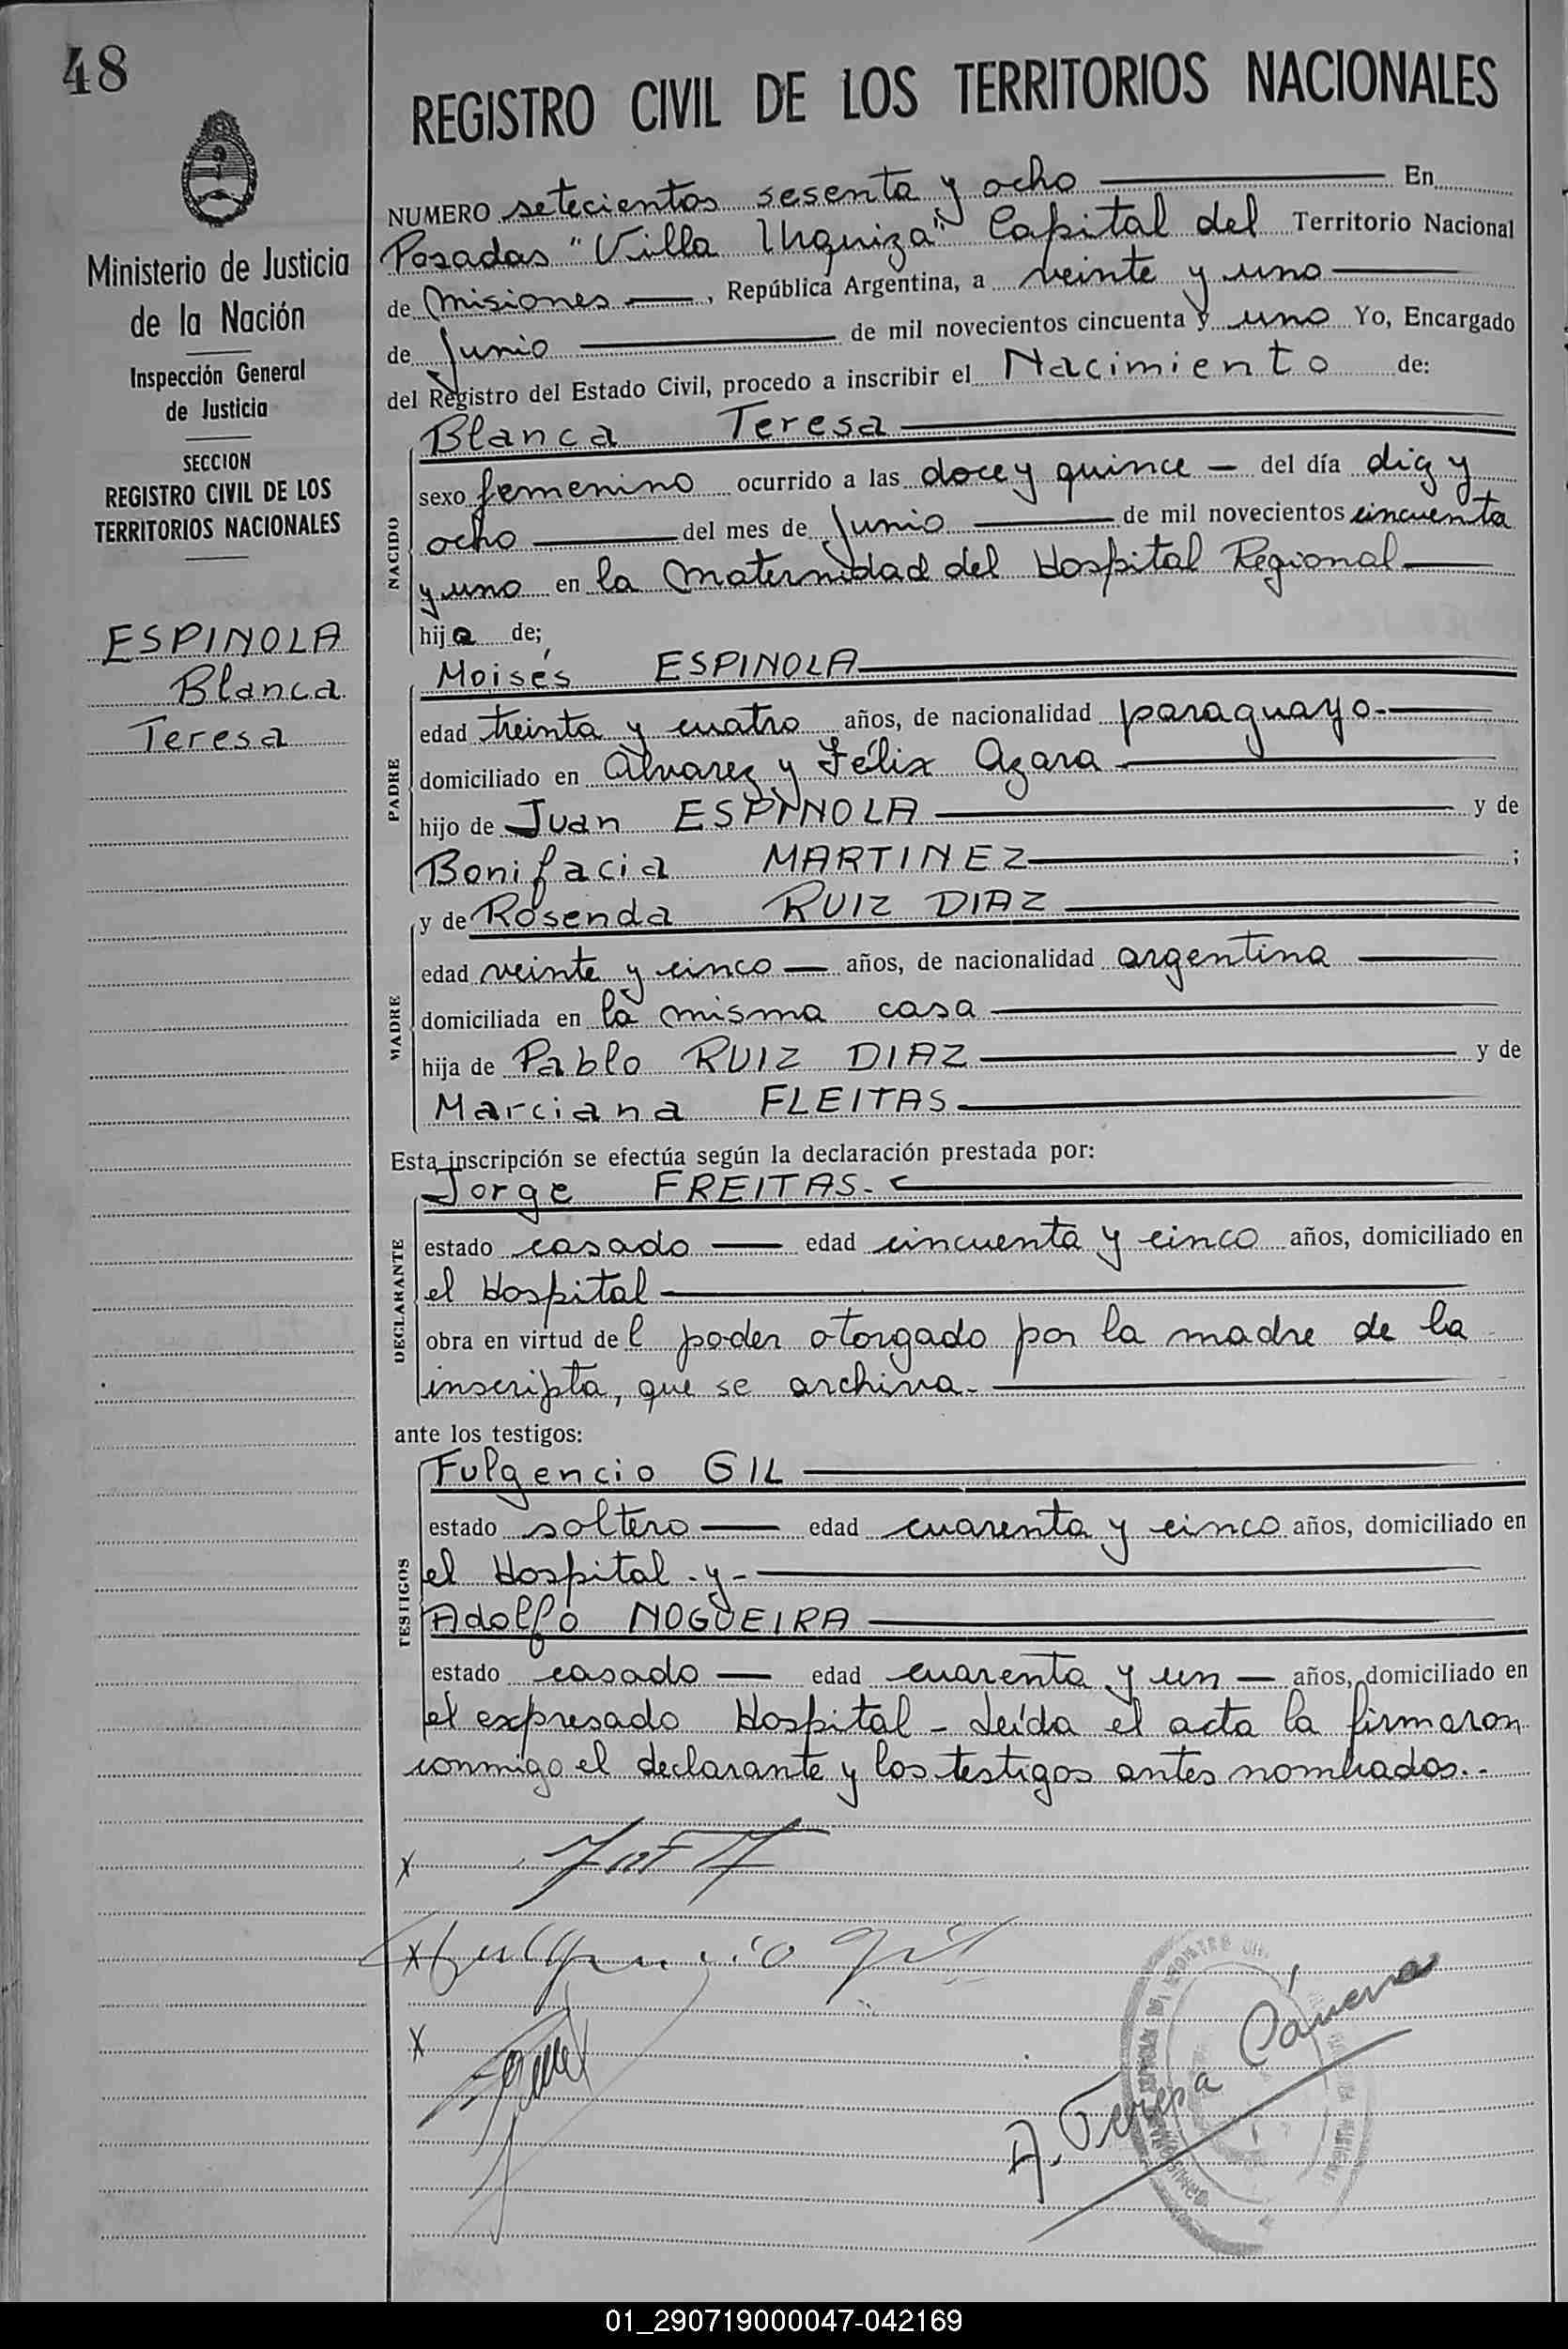 48
REGISTRO CIVIL DE LOS TERRITORIOS NACIONALES
Ministerio de Justicia
de la Nación
Inspección General
de Justicia
SECCION
REGISTRO CIVIL DE LOS
TERRITORIOS NACIONALES
ESPINOLA
Blanca
Teresa
NUMERO setecientos sesenta y ocho En
Posadas "Villa Urquiza" Capital del Territorio Nacional
de Misiones, República Argentina, a veinte y uno
de Junio de mil novecientos cincuenta y uno Yo, Encargado
del Registro del Estado Civil, procedo a inscribir el Nacimiento de:
NACIDO
Blanca Teresa
sexo femenino ocurrido a las doce y quince del día diez y
ocho del mes de Junio de mil novecientos cincuenta
y uno en la Maternidad del Hospital Regional
hija de;
PADRE
Moisés ESPINOLA
edad treinta y cuatro años, de nacionalidad paraguayo.
domiciliado en Alvarez y Félix Azara
hijo de Juan ESPINOLA y de
Bonifacia MARTINEZ ;
MADRE
y de Rosenda RUIZ DIAZ
edad veinte y cinco años, de nacionalidad argentina
domiciliada en la misma casa
hija de Pablo RUIZ DIAZ y de
Marciana FLEITAS
Esta inscripción se efectúa según la declaración prestada por:
DECLARANTE
Jorge FREITAS.
estado casado edad cincuenta y cinco años, domiciliado en
el Hospital
obra en virtud del poder otorgado por la madre de la
inscripta, que se archiva.
ante los testigos:
TESTIGOS
Fulgencio GIL
estado soltero edad cuarenta y cinco años, domiciliado en
el Hospital y
Adolfo NOGUEIRA
estado casado edad cuarenta y un años, domiciliado en
el expresado Hospital - Leída el acta la firmaron
conmigo el declarante y los testigos antes nombrados..
x
x Fulgencio Gil
x
A. Teresa Cánera
01_290719000047-042169